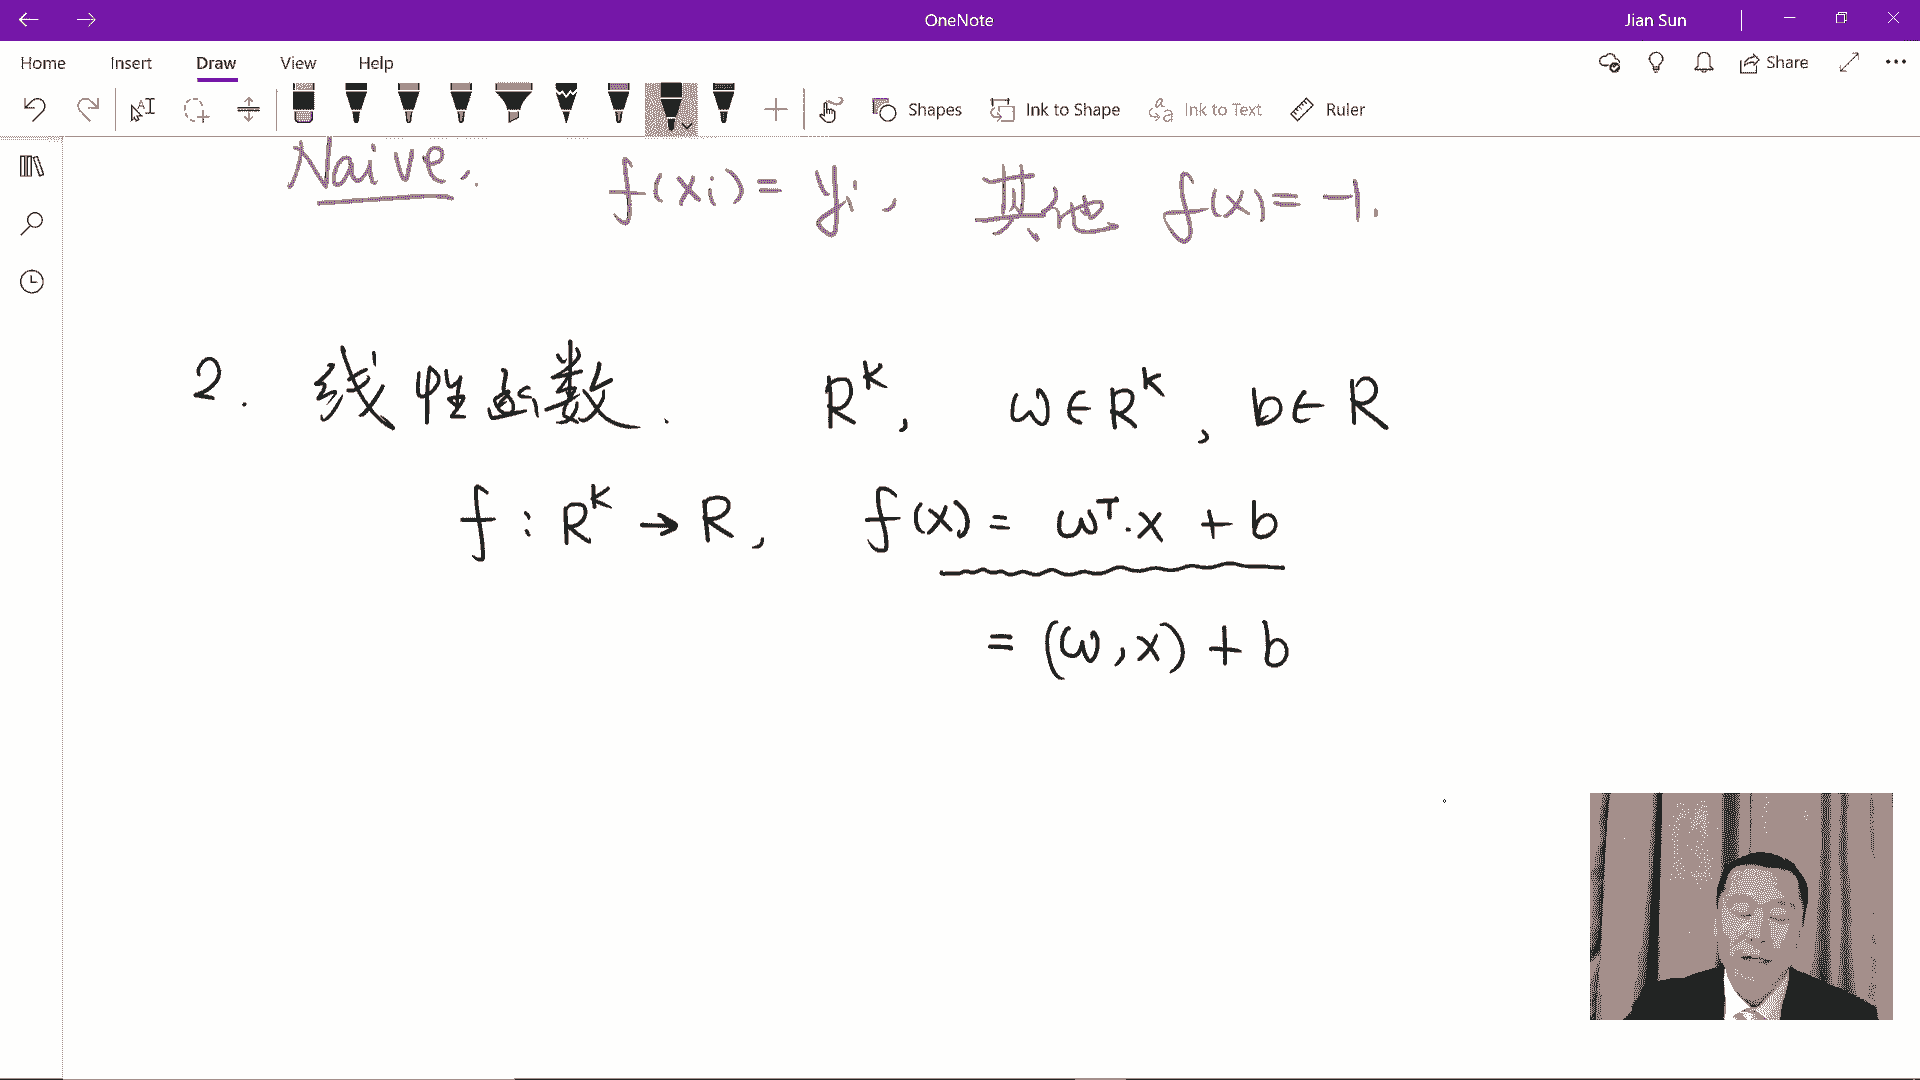 OneNote
Jian Sun
Home Insert Draw View Help
Share
Shapes Ink to Shape Ink to Text Ruler
Naive. f(xi) = yi, 其他 f(x) = -1.
2. 线性函数. R^K, ω∈R^K, b∈R
f : R^K → R, f(x) = ω^T·x + b
= (ω,x) + b